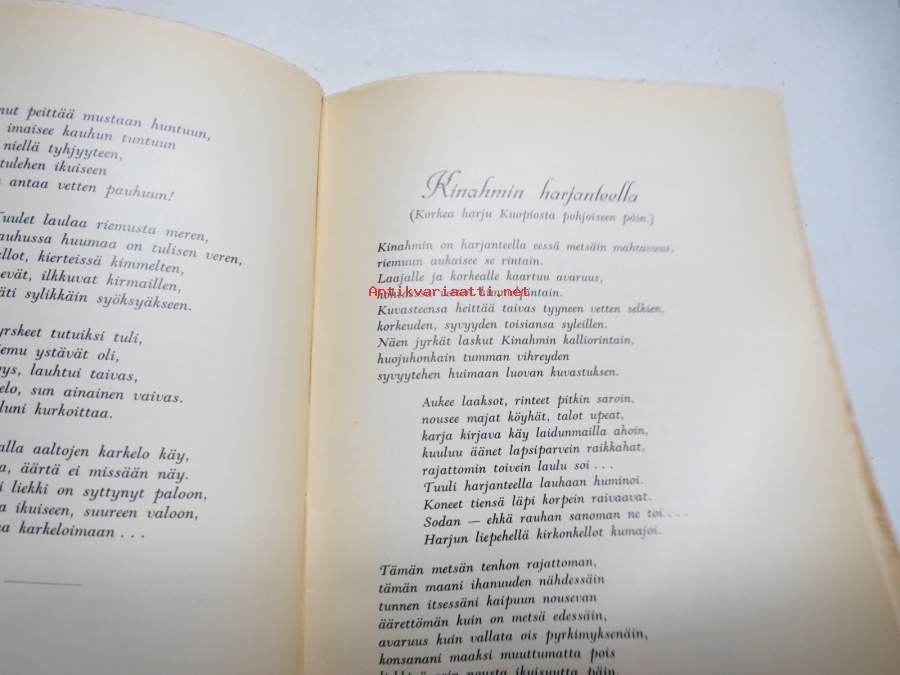 nut peittää mustaan huntuun,
imaisee kauhun tuntuun
niellä tyhjyyteen,
tulehen ikuiseen
antaa vetten pauhuun!
Tuulet laulaa riemusta meren,
auhussa huumaa on tulisen veren,
llot, kierteissä kimmelten,
evät, ilkkuvat kirmaillen,
äti sylikkäin syöksyäkseen.
yrskeet tutuiksi tuli,
iemu ystävät oli,
ys, lauhtui taivas,
elo, sun ainainen vaivas.
luni kurkoittaa.
alla aaltojen karkelo käy,
a, äärtä ei missään näy.
i liekki on syttynyt paloon,
a ikuiseen, suureen valoon,
na karkeloimaan . . .
Kinahmin harjanteella
(Korkea harju Kuopiosta pohjoiseen päin.)
Kinahmin on harjanteella eessä metsäin mahtavuus,
riemuun aukaisee se rintain.
Laajalle ja korkealle kaartuu avaruus,
Antikvariaatti.net
Kuvasteensa heittää taivas tyyneen vetten selkien,
korkeuden, syvyyden toisiansa syleillen.
Näen jyrkät laskut Kinahmin kalliorintain,
huojuhonkain tumman vihreyden
syvyytehen huimaan luovan kuvastuksen.
Aukee laaksot, rinteet pitkin saroin,
nousee majat köyhät, talot upeat,
karja kirjava käy laidunmailla ahoin,
kuuluu äänet lapsiparvein raikkahat,
rajattomin toivein laulu soi . . .
Tuuli harjanteella lauhaan huminoi.
Koneet tiensä läpi korpein raivaavat.
Sodan — ehkä rauhan sanoman ne toi . . .
Harjun liepehellä kirkonkellot kumajoi.
Tämän metsän tenhon rajattoman,
tämän maani ihanuuden nähdessäin
tunnen itsessäni kaipuun nousevan
äärettömän kuin on metsä edessäin,
avaruus kuin vallata ois pyrkimyksenäin,
konsanani maaksi muuttumatta pois
nousta ikuisuutta päin.